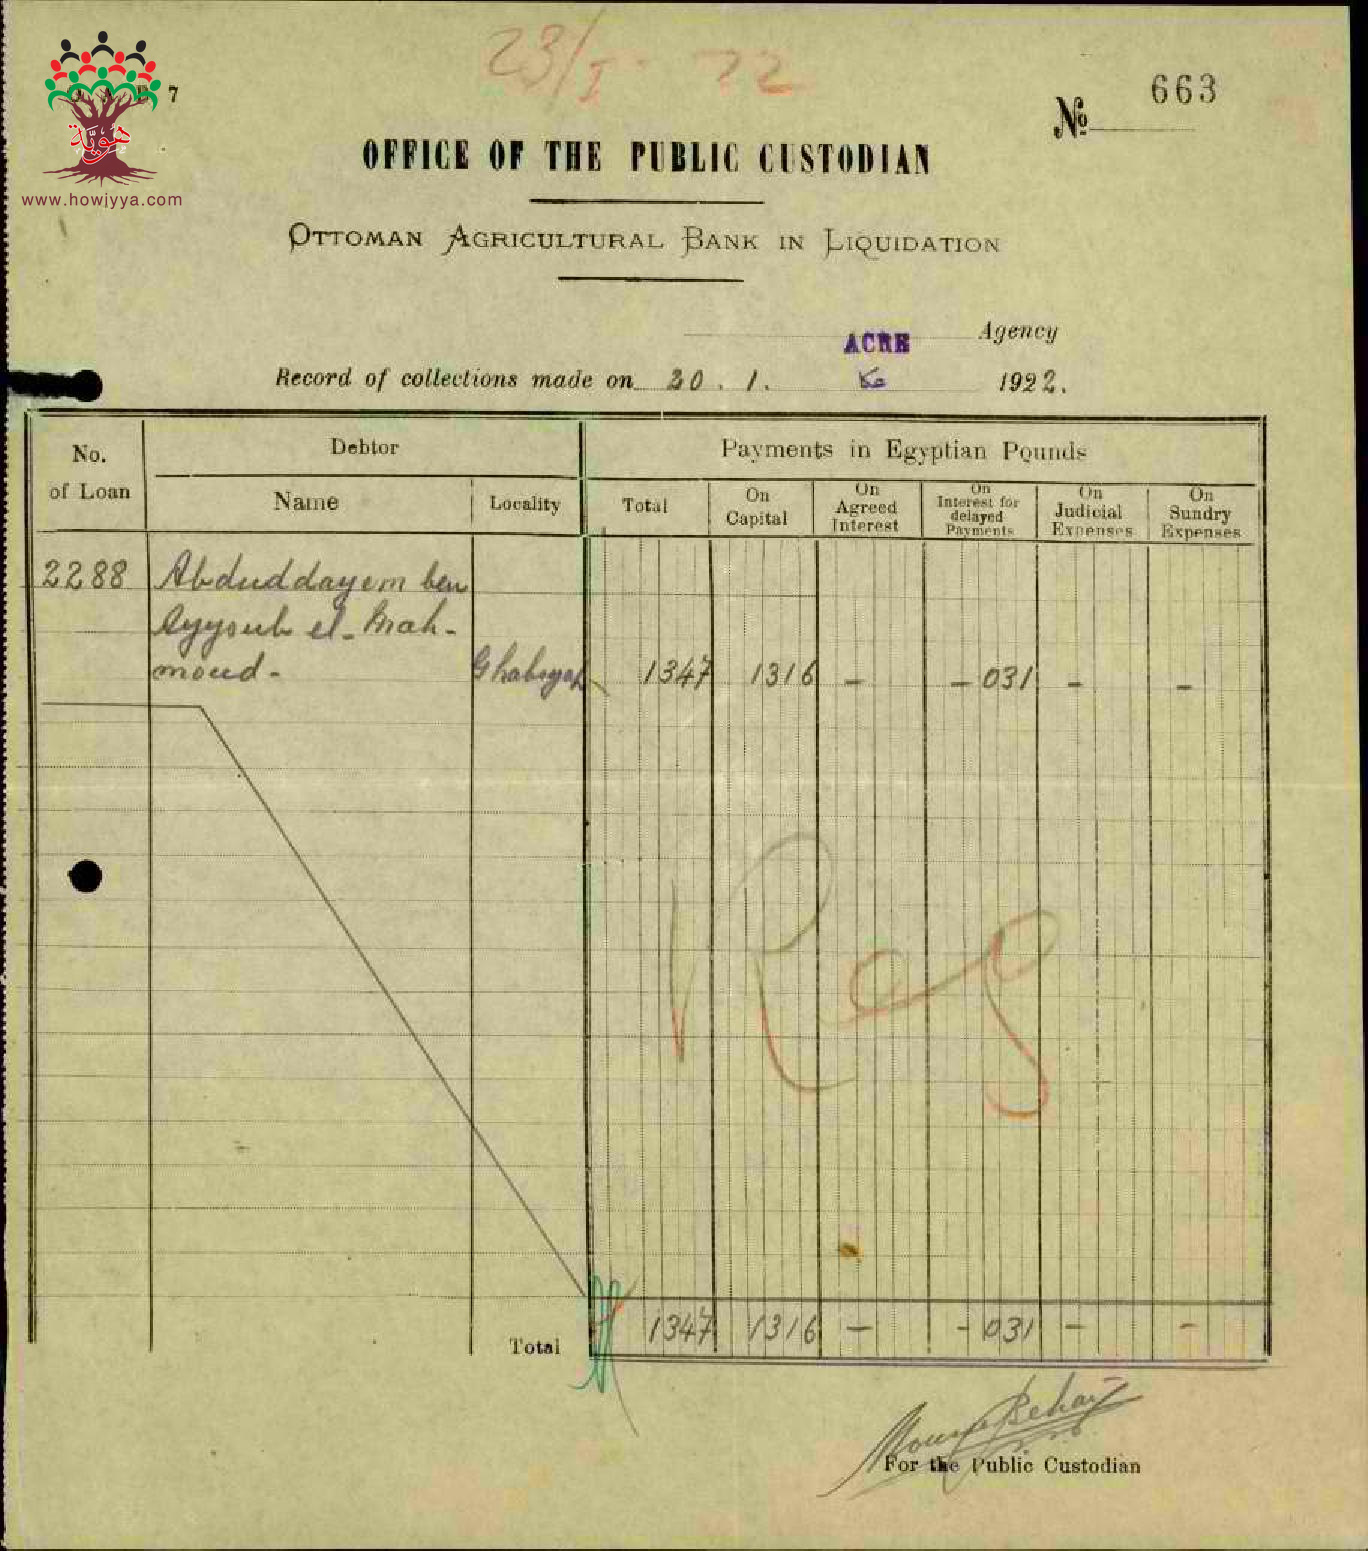 23/I - 22
7
هويّة
www.howiyya.com
No 663
OFFICE OF THE PUBLIC CUSTODIAN
OTTOMAN AGRICULTURAL BANK IN LIQUIDATION
ACRE Agency
Record of collections made on 20 . 1. 1922.
No. of Loan
Debtor
Payments in Egyptian Pounds
Name
Locality
Total
On Capital
On Agreed Interest
On Interest for delayed Payments
On Judicial Expenses
On Sundry Expenses
2288 Abduddayem ben
Ayyoub el-Mah-
moud- Ghabsyah 1347 1316 - - 031 - -
Reg
Total 1347 1316 - - 031 - -
For the Public Custodian